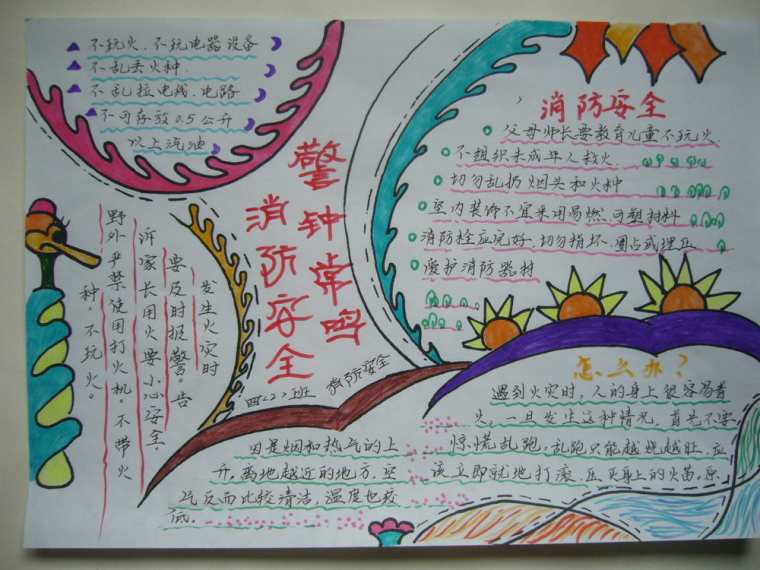 不玩火、不玩电器设备
不乱丢火种、
不乱拉电线、电路
不可存放0.5公升
以上汽油
警钟常鸣
消防安全
四<2>班
消防安全
消防安全
父母师长要教育儿童不玩火
不组织未成年人救火
切勿乱扔烟头和火种
室内装饰不宜采用易燃、可塑材料
消防栓应完好、切勿损坏、圈占或埋压
爱护消防器材
发生火灾时
要及时报警。告
诉家长用火要小心安全.
野外严禁使用打火机。不带火
种，不玩火。
怎么办？
遇到火灾时，人的身上很容易着
火。一旦发生这种情况，首先不要
惊慌乱跑。乱跑只能越烧越旺，应
该立即就地打滚，压灭身上的火苗。原
因是烟和热气的上
升。离地越近的地方，空
气反而比较清洁，温度也较
低。